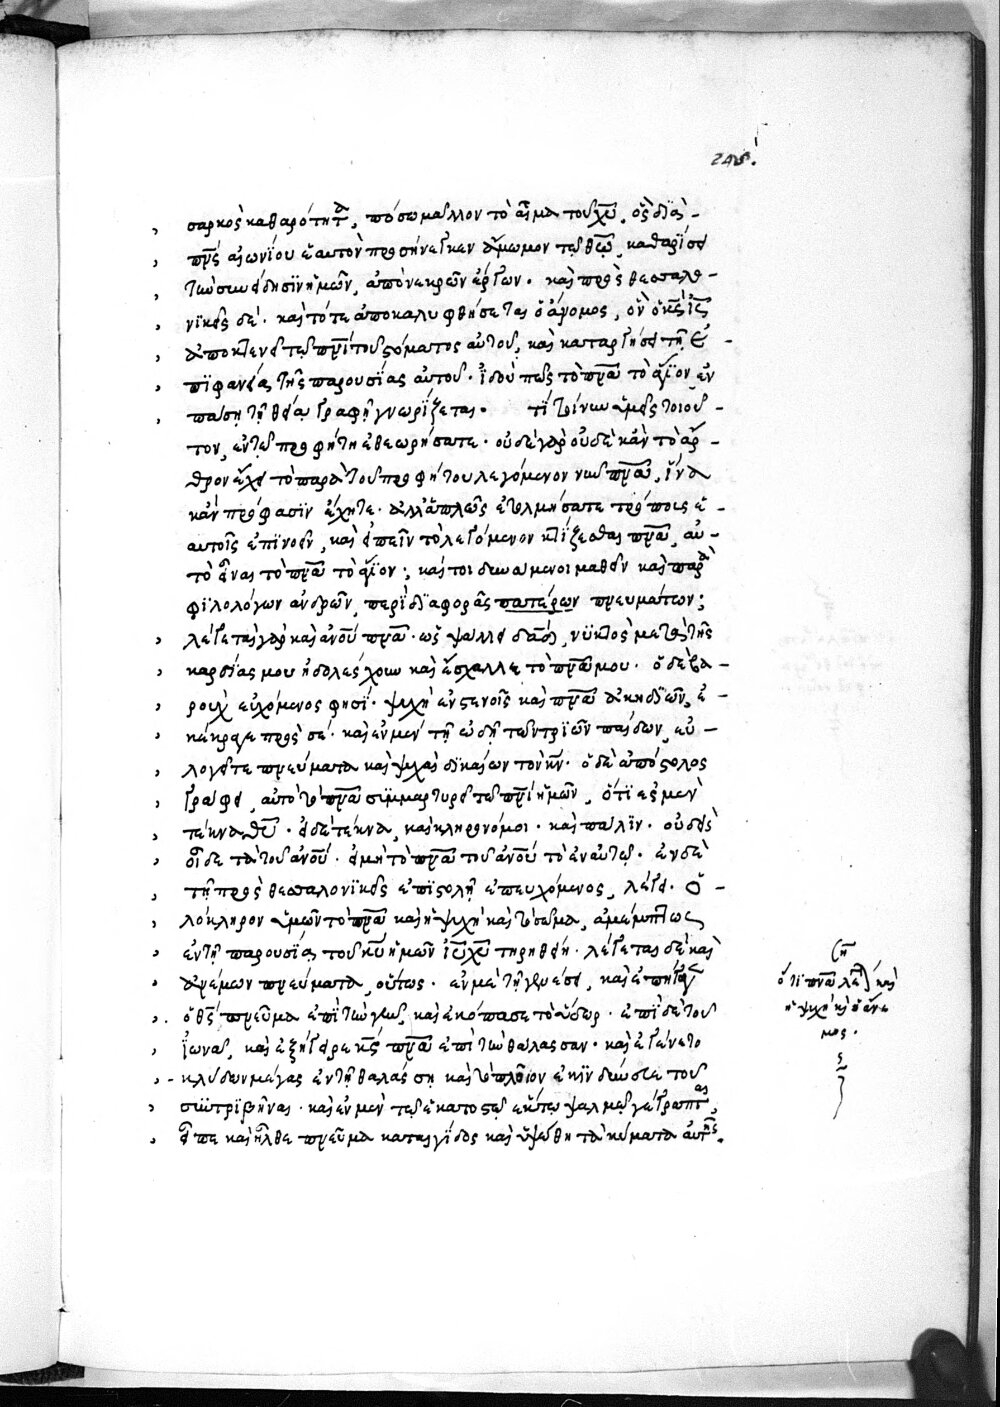 σαρκὸς καθαρότητα, πόσω μᾶλλον τὸ αἷμα τοῦ χυ̅, ὃς διὰ
πνς̅ αἰωνίου ἑαυτὸν προσήνεγκεν ἄμωμον τῶ θω̅, καθαρίσει
τὴν συνείδησιν ἡμῶν, ἀπὸ νεκρῶν ἔργων. καὶ πρὸς θεσσαλο-
νικεῖς δέ. καὶ τότε ἀποκαλυφθήσεται ὁ ἄνομος, ὃν ὁ κς̅ ις̅
ἀποκτενεῖ τῶ πνι̅ τοῦ στόματος αὐτοῦ, καὶ καταργήσει τῆ ἐ-
πιφανεία τῆς παρουσίας αὐτοῦ. ἰδοὺ πῶς τὸ πνα̅ τὸ ἅγιον ἐν
πάση τῆ θεία γραφῆ γνωρίζεται. τί τοίνυν ὑμεῖς τοιοῦ-
τον, ἐν τῶ προφήτη ἐθεωρήσατε. οὐδὲ γὰρ οὐδὲ κἂν τὸ ἄρ-
θρον ἔχει τὸ παρὰ τοῦ προφήτου λεγόμενον νῦν πνα̅, ἵνα
κἂν πρόφασιν ἔχητε. ἀλλ' ἁπλῶς ἐτολμήσατε τρόπους ἑ-
αυτοῖς ἐπινοεῖν, καὶ εἰπεῖν τὸ λεγόμενον κτίζεσθαι πνα̅, αὐ-
τὸ εἶναι τὸ πνα̅ τὸ ἅγιον; καίτοι δυνάμενοι μαθεῖν καὶ παρὰ
φιλολόγων ἀνδρῶν, περὶ διαφορᾶς πατέρων πνευμάτων;
λέγεται γὰρ καὶ ἀνου̅ πνα̅. ὡς ψάλλει δαδ̅, νυκτὸς μετὰ τῆς
καρδίας μου ἠδολέσχουν καὶ ἔσχαλλε τὸ πνα̅ μου. ὁ δὲ βα-
ροὺχ εὐχόμενος φησί. ψυχὴ ἐν στενοῖς καὶ πνα̅ ἀκηδιῶν, ἐ-
κέκραγε πρὸς σέ. καὶ ἐν μὲν τῆ ὠδῆ τῶν τριῶν παίδων, εὐ-
λογεῖτε πνεύματα καὶ ψυχαὶ δικαίων τὸν κν̅. ὁ δὲ ἀπόστολος
γράφει, αὐτὸ τὸ πνα̅ συμμαρτυρεῖ τῶ πνι̅ ἡμῶν, ὅτι ἐσμὲν
τέκνα θυ̅. εἰ δὲ τέκνα, καὶ κληρονόμοι. καὶ πάλιν. οὐδεὶς
οἶδε τὰ τοῦ ἀνου̅. εἰ μὴ τὸ πνα̅ τοῦ ἀνου̅ τὸ ἐν αὐτῶ. ἐν δὲ
τῆ πρὸς θεσσαλονικεῖς ἐπιστολῆ ἐπευχόμενος, λέγει. ὁ-
λόκληρον ὑμῶν τὸ πνα̅ καὶ ἡ ψυχὴ καὶ τὸ σῶμα, ἀμέμπτως
ἐν τῆ παρουσία τοῦ κυ̅ ἡμῶν ιυ̅ χυ̅ τηρηθείη. λέγεται δὲ καὶ
ἀνέμων πνεύματα, οὕτως. ἐν μὲν τῆ γενέσει, καὶ ἐπήγαγεν
ὁ θς̅ πνεῦμα ἐπὶ τὴν γῆν, καὶ ἐκόπασε τὸ ὕδωρ. ἐπὶ δὲ τοῦ
ἰωνᾶ, καὶ ἐξήγειρε κς̅ πνα̅ ἐπὶ τὴν θάλασσαν. καὶ ἐγένετο
κλύδων μέγας ἐν τῆ θαλάσση καὶ τὸ πλοῖον ἐκινδύνευε τοῦ
συντριβῆναι. καὶ ἐν μὲν τῶ ἑκατοστῶ ἕκτω ψαλμῶ γέγραπται,
εἶπε καὶ ἦλθε πνεῦμα καταιγίδος καὶ ὑψώθη τὰ κύματα αὐτῆς.
ση
ὅτι πνα̅ λέγεται καὶ
ἡ ψυχὴ καὶ ὁ ἄνε
μος.